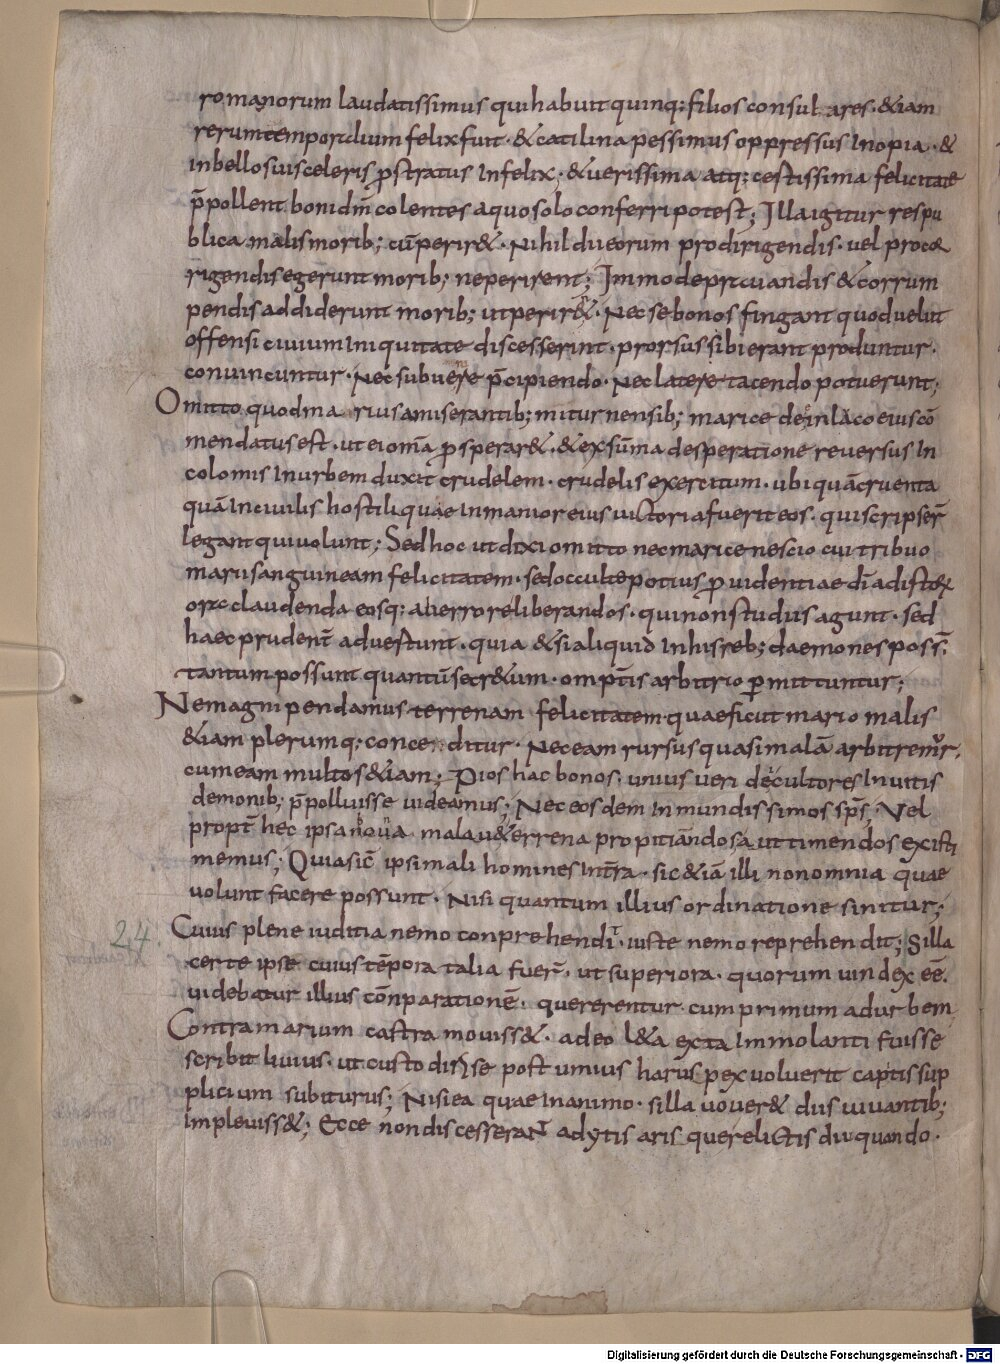 romanorum laudatissimus qui habuit quinq; filios consulares · &iam
rerum temporalium felix fuit · & catilina pessimus oppressus inopia · &
in bello sui sceleris p̄stratus infelix; & uerissima atq; certissima felicitate
p̄pollent boni dm̄ colentes a quo solo conferri potest; Illa igitur respu
blica malis morib; cū perir& · Nihil dii eorum pro dirigendis · uel pro cor
rigendis egerunt morib; ne perirent; Immo deprauandis & corrum
pendis addiderunt morib; ut perir& · Nec se bonos fingant quod uelut
offensi ciuium iniquitate discesserint · prorsus sibi erant produntur ·
conuincuntur · Nec subuenire p̄cipiendo · Nec latere tacendo potuerunt;
Omitto quod marius a miserantib; miturnensib; marice deę in laco eius cō
mendatus est · ut ei omīa p̄sperar& · & ex sūma desperatione reuersus in
colomis in urbem duxit crudelem · crudelis exercitum · ubi quā cruenta
quā inciuilis hostilique inmanior eius uictoria fuerit eos · qui scripser̄
legant qui uolunt; Sed hoc ut dixi omitto nec marice nescio cui tribuo
marii sanguineam felicitatem · sed occulte potius p̄uidentiae dī ad istor
ora claudenda eosq; ab errore liberandos · qui non studiis agunt · sed
haec prudent̄ aduertunt · quia &si aliquid in his reb; daemones poss̄;
tantum possunt quantū secr&um · omp̄tis arbitrio p̄mittuntur;
Ne magni pendamus terrenam felicitatem quae sicut mario malis
&iam plerumq; conceditur · Nec eam rursus quasi malā arbitremur,
cum eam multos &iam; Pios hac bonos; unius ueri dī cultores inuitis
demonib; p̄polluisse uideamus; Nec eosdem inmundissimos sp̄s; Vel
propt̄ hec ipsa bona malau& terrena propitiandos aut timendos existi
memus; Quia sic̄ ipsi mali homines in tr̄a · sic &iā illi non omnia quae
uolunt facere possunt · Nisi quantum illius ordinatione sinitur;
24. Cuius plene iuditia nemo conprehendit · iuste nemo reprehendit; Silla
certe ipse cuius tēpora talia fuer̄ · ut superiora · quorum uindex eē
uidebatur illius cōnparationē · quererentur · cum primum ad urbem
Contra marium castra mouiss& · adeo l&a exta immolanti fuisse
scribit liuius · ut custodiri se postumius haruspex uoluerit capitis sup
plicium subiturus; Nisi ea quae in animo · silla uouer& diis iuuantib;
impleuiss&; Ecce non discesserant adytis aris que relictis dii quando ·
Digitalisierung gefördert durch die Deutsche Forschungsgemeinschaft - DFG